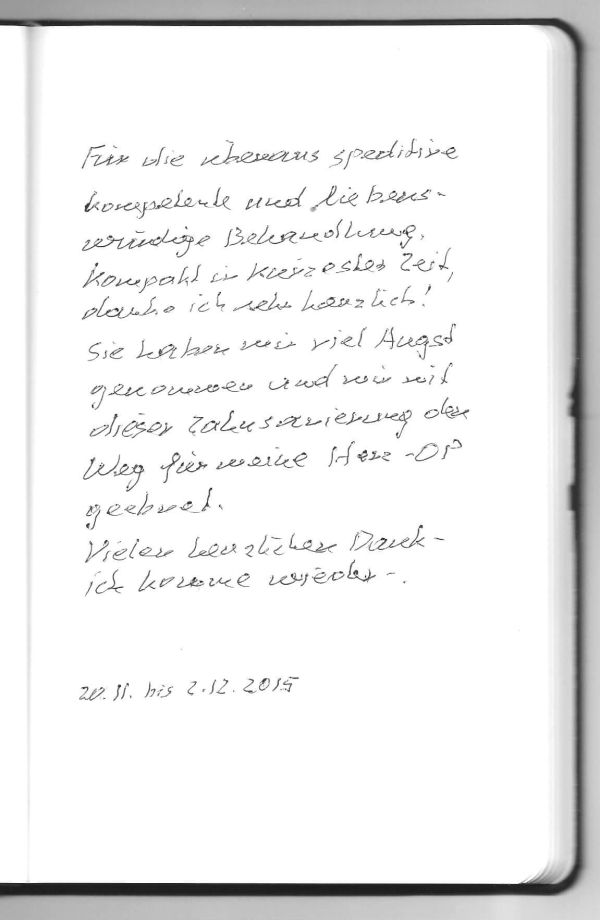 Für die überaus speditive
kompetente und liebens-
würdige Behandlung,
kompakt in kürzester Zeit,
danke ich sehr herzlich!
Sie haben mir viel Angst
genommen und mir mit
dieser Zahnsanierung den
Weg für meine Herz-OP
geebnet.
Vielen herzlichen Dank -
ich komme wieder -.
20.11. bis 2.12.2015